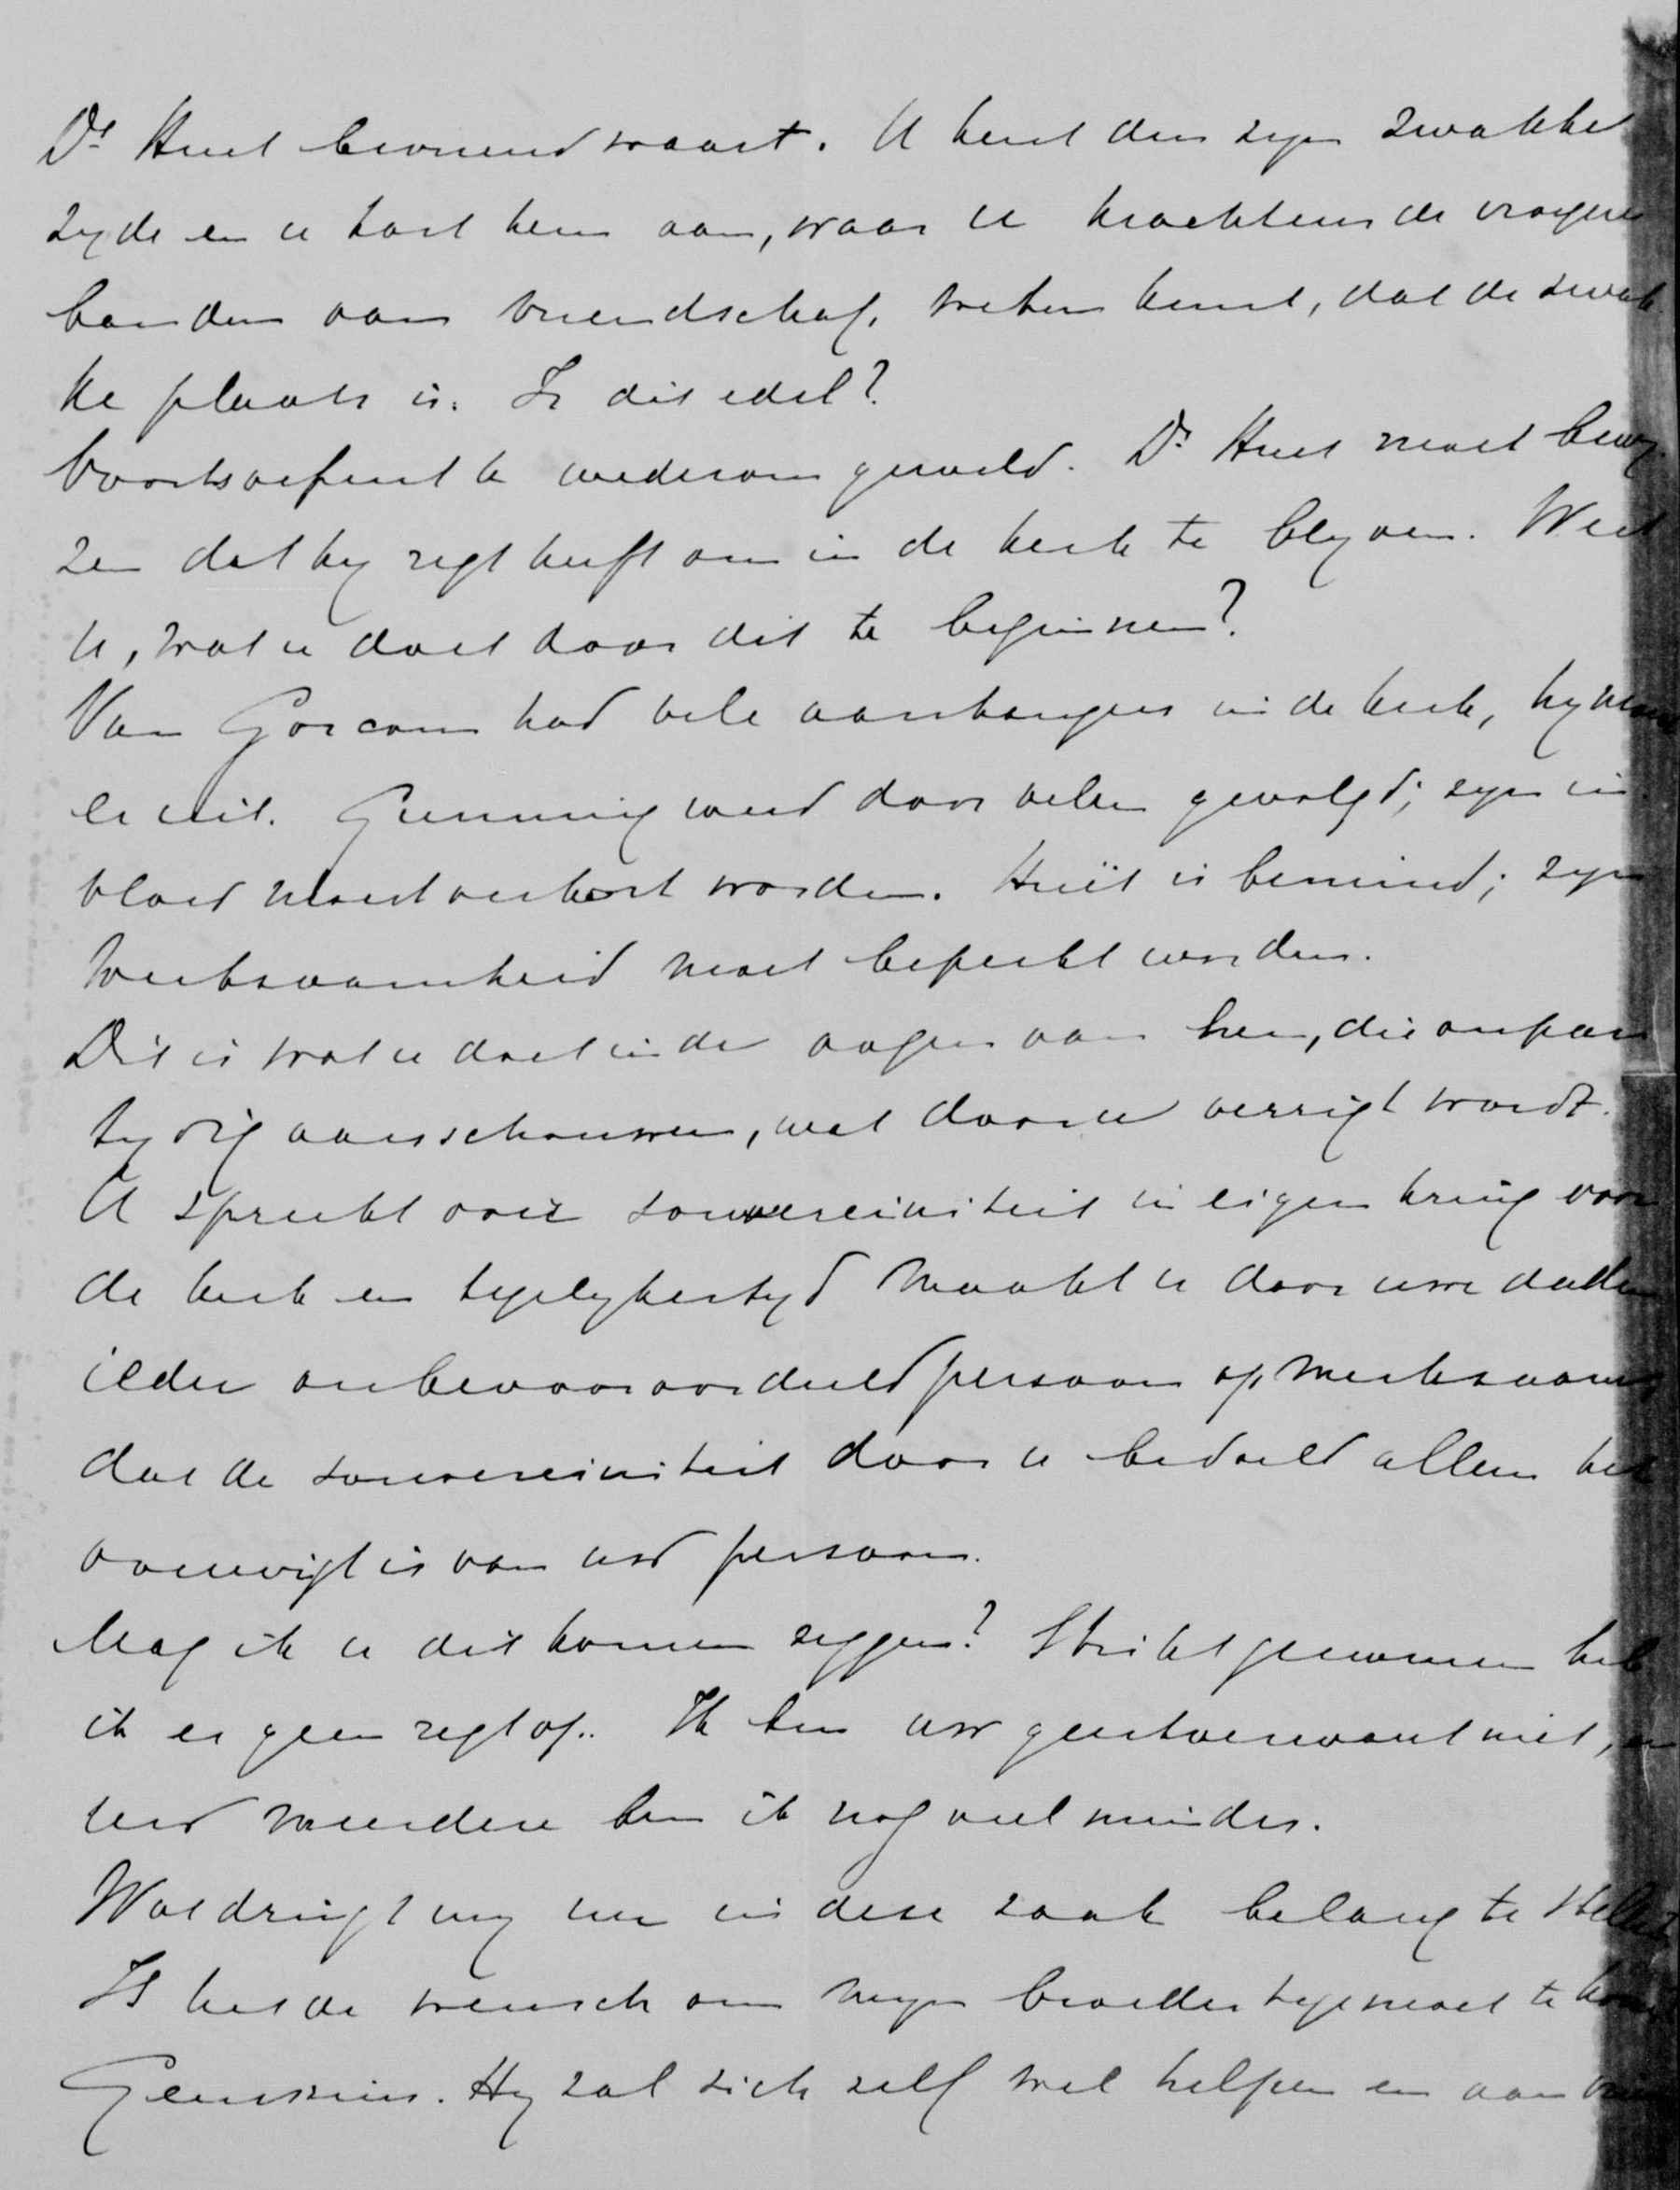 Ds Huet bewonend waart. U kent den zyn zwakke
zyde en u tast hem aan, waar u krachtens de vroegere
banden van vriendschap, weten kunt, dat de zwak
ke plaats is. Is dit edel?
Voorts oefent u wederom geweld. Ds Huet moet bewy
zen dat hy regt heeft om in de kerk te blyven. Weet
u, wat u doet door dit te beginnen?
Van Gorcom had vele aanhangers in de kerk, hy moest
er uit. Gunning werd door velen gevolgd; zyn in
vloed moest verkort worden. Huët is bemind; zyn
werkzaamheid moet beperkt worden.
Dit is wat u doet in de oogen van hen, die onpar
tydig aanschouwen, wat door u verrigt wordt.
U spreekt over souvereiniteit in eigen kring voor
de kerk en tegelykertyd maakt u door uwe daden
ieder onbevooroordeeld persoon opmerkzaam,
dat de souvereiniteit door u bedoeld alleen het
overwigt is van uw persoon.
Mag ik u dit komen zeggen? Strikt genomen heb
ik er geen regt op. Ik ben uw geestverwant niet, en
uw meerdere ben ik nog veel minder.
Wat dringt my nu in deze zaak belang te stellen
Is het de wensch om myn broeder tegemoet te komen
Geenszins. Hy zal zich zelf wel helpen en aan